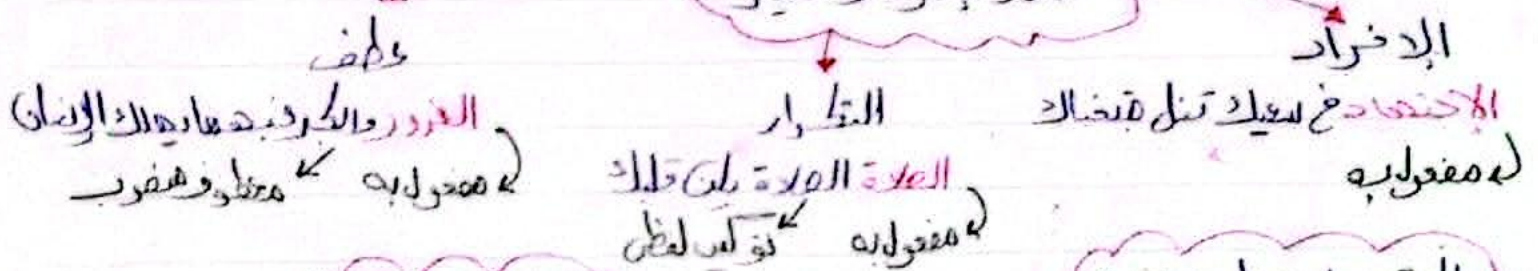 الإفراد
الاجتهاد في سعيك تنل مبتغاك
مفعول به
التكرار
الصلاة الصلاة يلن قلبك
مفعول به توكيد لفظي
عطف
الغرور والكبر فبهما يهلك الإنسان
مفعول به معطوف منصوب